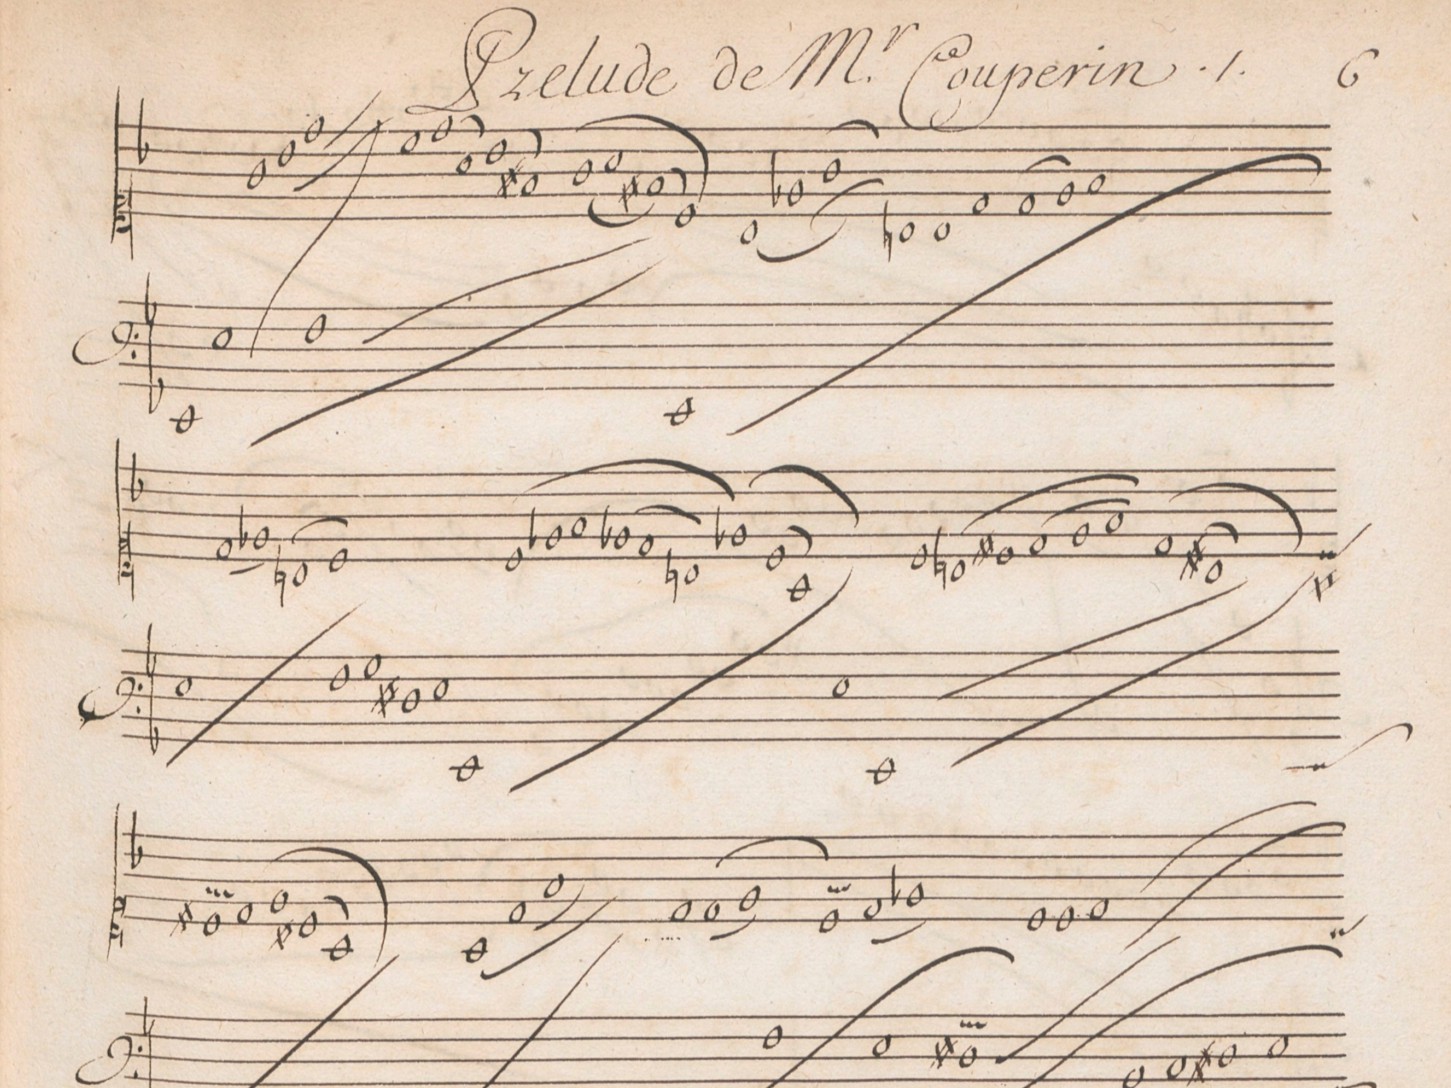 Prelude de Mr. Couperin .1. 6